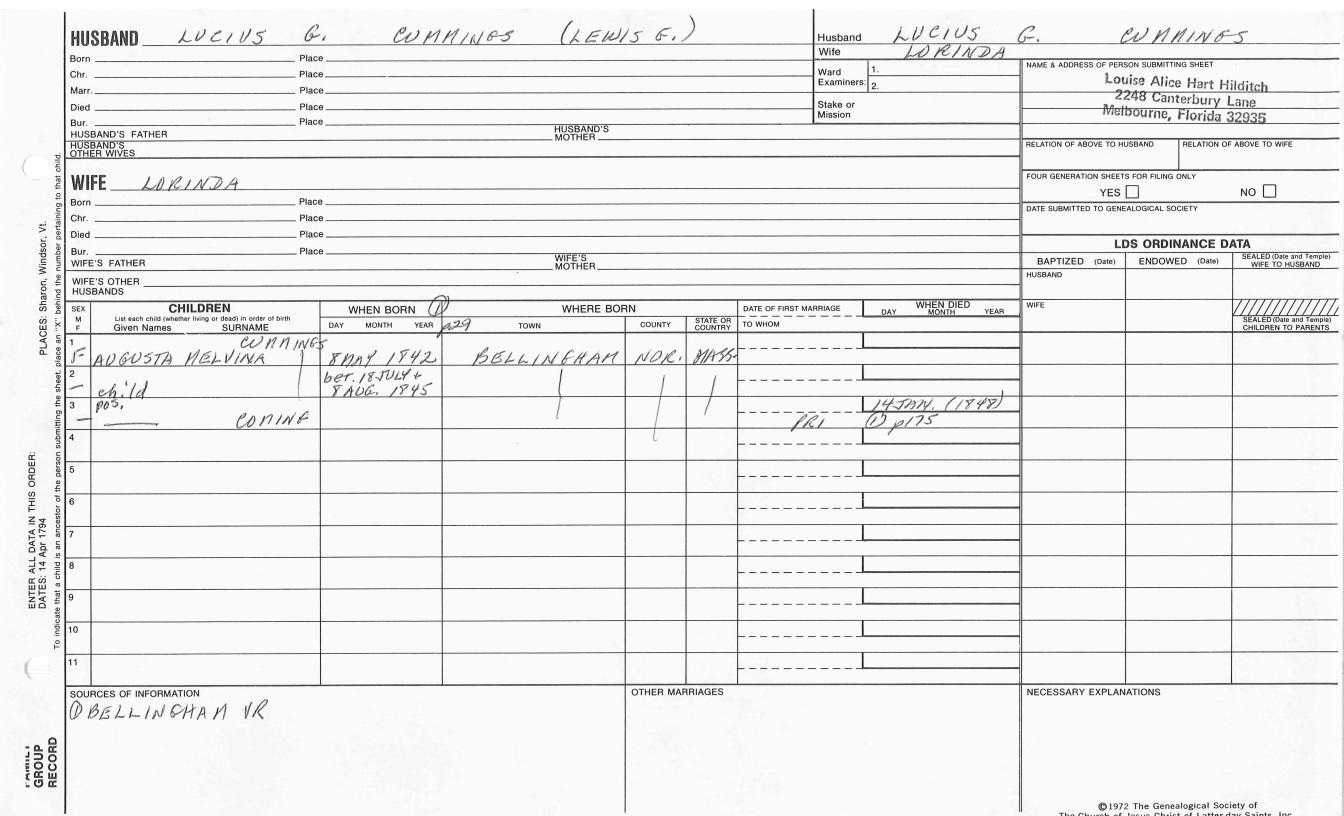 HUSBAND LUCIUS G. CUMMINGS (LEWIS G.)
Born Place
Chr. Place
Marr. Place
Died Place
Bur. Place
HUSBAND'S FATHER HUSBAND'S MOTHER
HUSBAND'S OTHER WIVES
WIFE LORINDA
Born Place
Chr. Place
Died Place
Bur. Place
WIFE'S FATHER WIFE'S MOTHER
WIFE'S OTHER HUSBANDS
Husband LUCIUS G. CUMMINGS
Wife LORINDA
Ward Examiners: 1.
2.
Stake or Mission
NAME & ADDRESS OF PERSON SUBMITTING SHEET
Louise Alice Hart Hilditch
2248 Canterbury Lane
Melbourne, Florida 32935
RELATION OF ABOVE TO HUSBAND RELATION OF ABOVE TO WIFE
FOUR GENERATION SHEETS FOR FILING ONLY
YES NO
DATE SUBMITTED TO GENEALOGICAL SOCIETY
LDS ORDINANCE DATA
BAPTIZED (Date) ENDOWED (Date) SEALED (Date and Temple) WIFE TO HUSBAND
HUSBAND
WIFE
SEALED (Date and Temple) CHILDREN TO PARENTS
SEX M F
CHILDREN
List each child (whether living or dead) in order of birth
Given Names SURNAME
WHEN BORN ①
DAY MONTH YEAR p29
WHERE BORN
TOWN COUNTY STATE OR COUNTRY
DATE OF FIRST MARRIAGE
TO WHOM
WHEN DIED
DAY MONTH YEAR
1 CUMMINGS
F AUGUSTA MELVINA 8 MAY 1842 BELLINGHAM NOR. MASS.
2 bet. 18 JULY +
— child 8 AUG. 1845
3 pos. 14 JAN. (1848)
— COMING PRI ① p175
4
5
6
7
8
9
10
11
SOURCES OF INFORMATION
① BELLINGHAM VR
OTHER MARRIAGES
NECESSARY EXPLANATIONS
©1972 The Genealogical Society of
The Church of Jesus Christ of Latter-day Saints, Inc.
PLACES: Sharon, Windsor, Vt.
ENTER ALL DATA IN THIS ORDER:
DATES: 14 Apr 1794
To indicate that a child is an ancestor of the person submitting the sheet, place an "X" behind the number pertaining to that child.
FAMILY
GROUP
RECORD